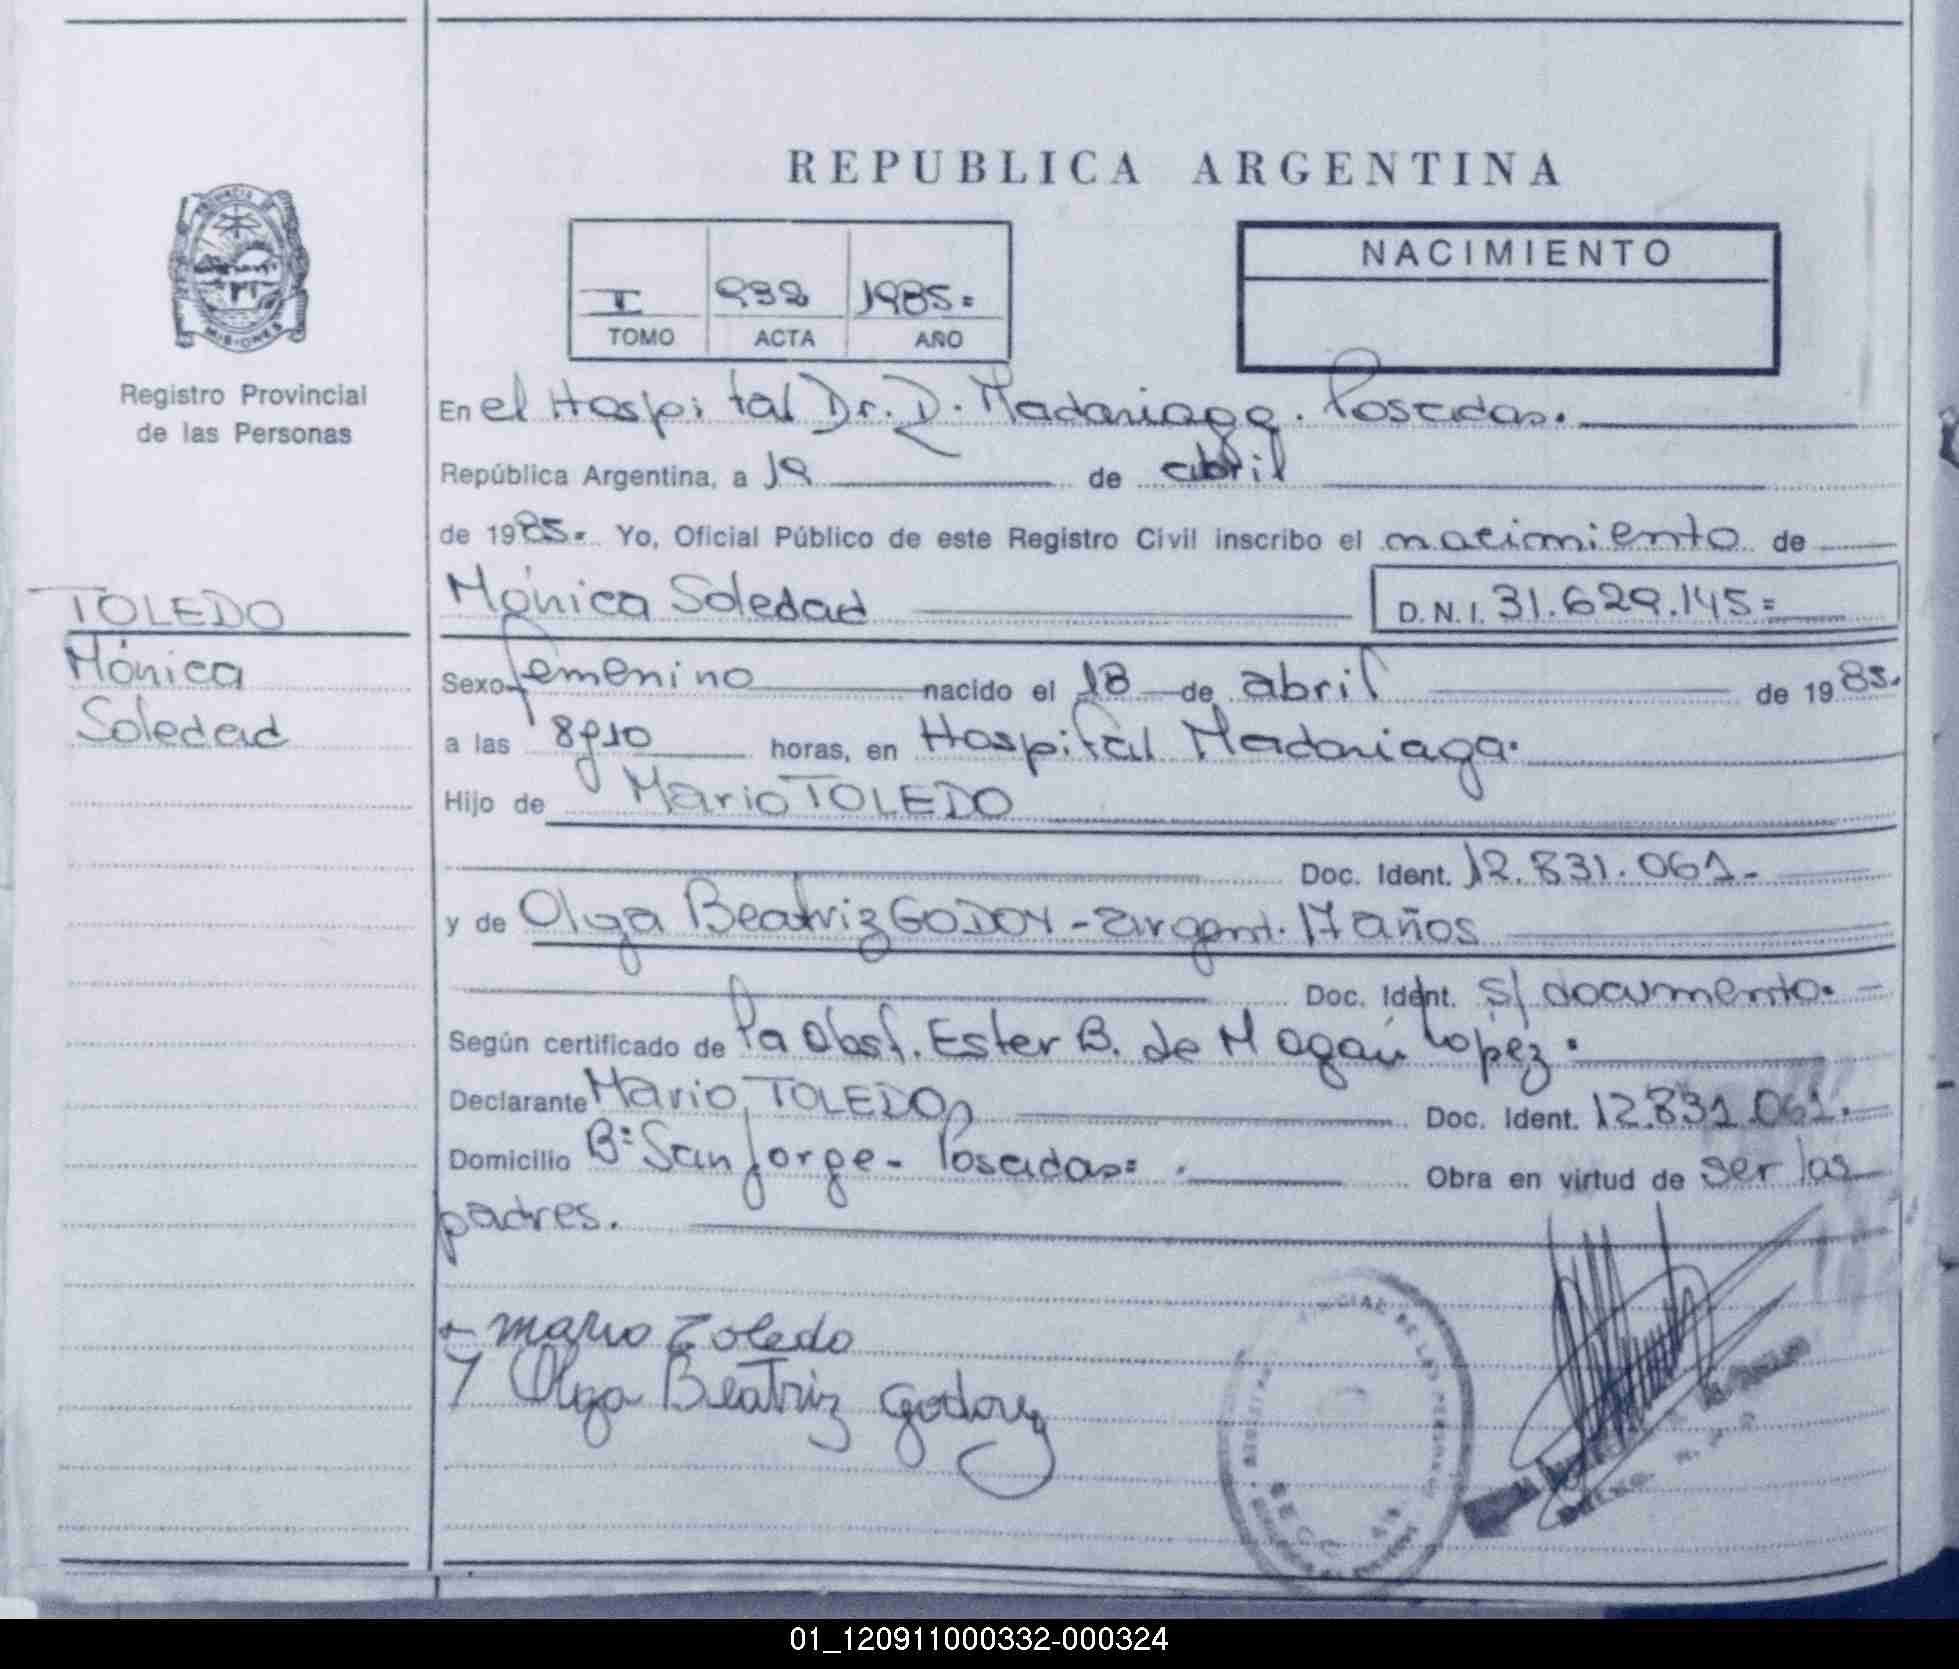 REPUBLICA ARGENTINA
MISIONES
Registro Provincial
de las Personas
I 932 1985=
TOMO ACTA AÑO
NACIMIENTO
En el Hospital Dr. R. Madariaga. Posadas.
República Argentina, a 19 de abril
de 1985= Yo, Oficial Público de este Registro Civil inscribo el nacimiento de
TOLEDO
Mónica
Soledad
Mónica Soledad D.N.I. 31.629.145=
Sexo femenino nacido el 18 de abril de 1985.
a las 8y10 horas, en Hospital Madariaga.
Hijo de Mario TOLEDO
Doc. Ident. 12.831.061-
y de Olga Beatriz GODOY - argent. 17 años
Doc. Ident. s/ documento. -
Según certificado de la Obst. Ester B. de Magán López.
Declarante Mario TOLEDO Doc. Ident. 12.831.061.
Domicilio Bº San Jorge - Posadas= . Obra en virtud de ser los
padres.
Mario Toledo
Olga Beatriz Godoy
01_120911000332-000324